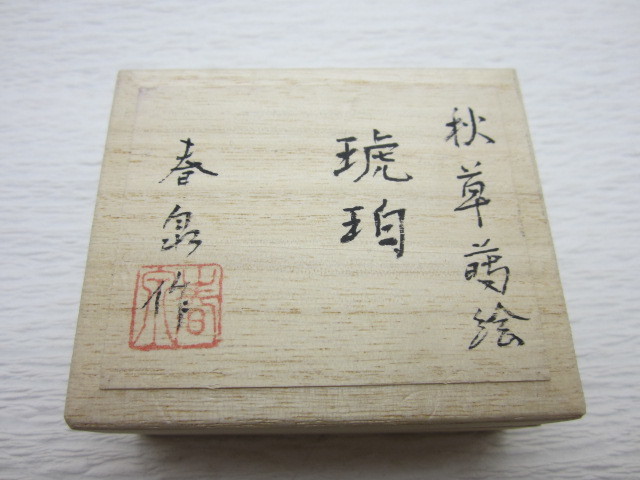 秋草蒔絵
琥珀
春泉作
春泉